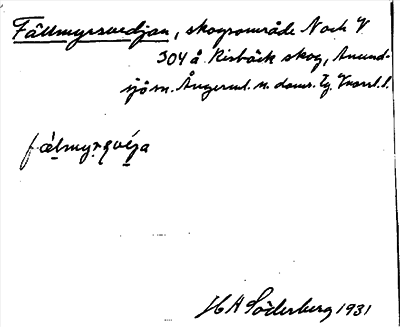 Fällmyrsvedjan, skogsområde N och V
304 å Risbäck skog, Anund-
sjö sn. Ångerml. n. doms. Tg. Vnorrl. l.
fälmyrsvéja
H A Söderberg 1931